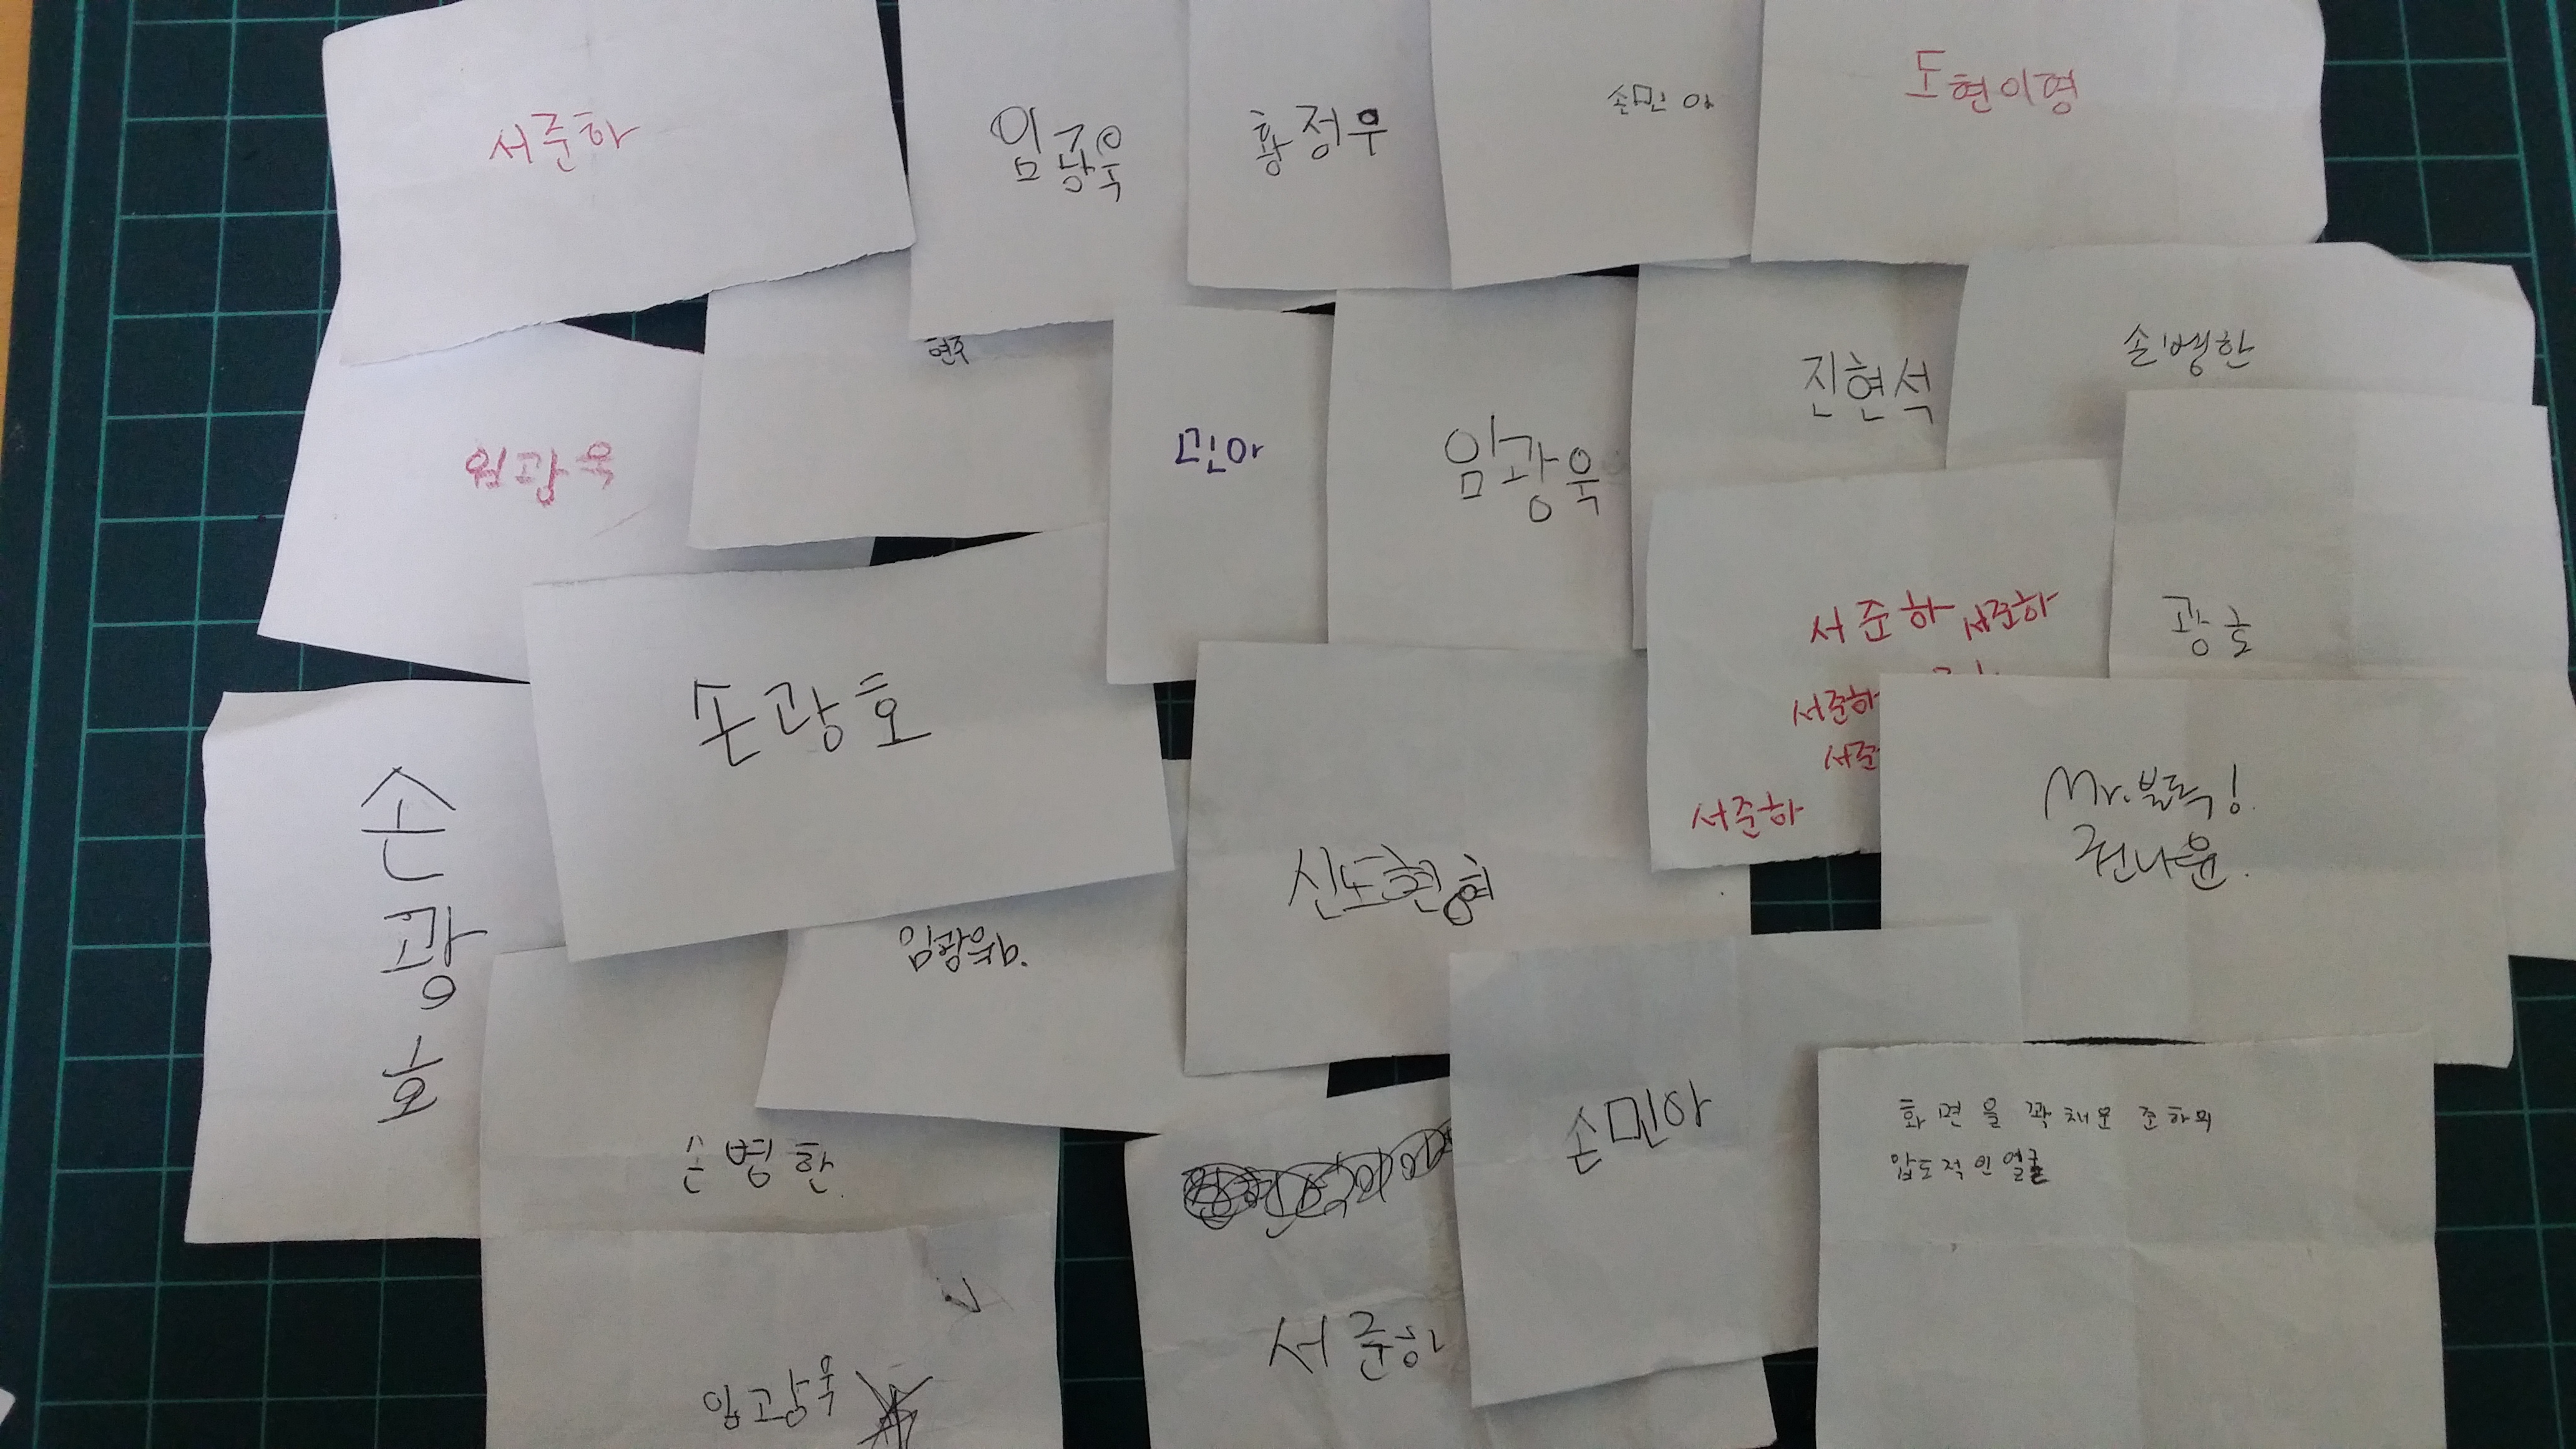 서준하
임광욱
황정우
손민아
도현이형
현주
임광욱
민아
임광욱
진현석
손병한
서준하 서준하
서준하
서준
서준하
광호
손광호
손광호
신도현형
Mr.블랙!
권나윤.
임광욱
손병한.
손민아
화면을 꽉채운 준하의
압도적인 얼굴
서준하
임광욱